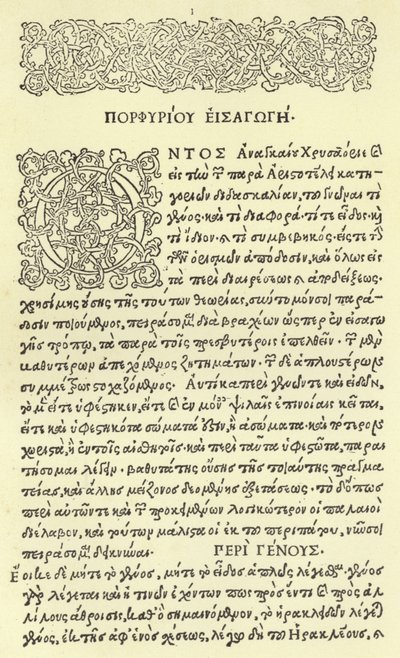 1
ΠΟΡΦΥΡΙΟΥ ΕἸΣΑΓΩΓΗ´.
ΟΝΤΟΣ Ἀναγκαίου Χρυσαόριε καὶ
εἰς τὴν τῶν παρὰ Ἀριστοτέλει κατη
γοριῶν διδασκαλίαν, τοῦ γνῶναι τί
γένος, καὶ τί διαφορά· τί τε εἶδος, καὶ
τί ἴδιον· καὶ τί συμβεβηκός· εἴς τε τὴν
τῶν ὁρισμῶν ἀπόδοσιν, καὶ ὅλως εἰς
τὰ περὶ διαιρέσεως καὶ ἀποδείξεως·
χρησίμης οὔσης τῆς τούτων θεωρίας, σύντομόν σοι παρά
δοσιν ποιούμενος, πειράσομαι διὰ βραχέων ὥσπερ ἐν εἰσαγω
γῆς τρόπῳ, τὰ παρὰ τοῖς πρεσβυτέροις ἐπελθεῖν· τῶν μὲν
βαθυτέρων ἀπεχόμενος ζητημάτων· τῶν δὲ ἁπλουστέρων
συμμέτρως στοχαζόμενος· Αὐτίκα περὶ γενῶν τε καὶ εἰδῶν,
τὸ μὲν εἴτε ὑφέστηκεν, εἴτε καὶ ἐν μόναις ψιλαῖς ἐπινοίαις κεῖται,
εἴτε καὶ ὑφεστηκότα σώματά ἐστιν, ἢ ἀσώματα· καὶ πότερον
χωριστὰ, ἢ ἐν τοῖς αἰσθητοῖς· καὶ περὶ ταῦτα ὑφεστῶτα, παραι
τήσομαι λέγειν· βαθυτάτης οὔσης τῆς τοιαύτης πραγμα
τείας, καὶ ἄλλης μείζονος δεομένης ἐξετάσεως· τὸ δ' ὅπως
περὶ αὐτῶν τε καὶ τῶν προκειμένων λογικώτερον οἱ παλαιοὶ
διέλαβον, καὶ τούτων μάλιστα οἱ ἐκ τοῦ περιπάτου, νῦν σοι
πειράσομαι δεικνύναι· ΠΕΡῚ ΓΕΝΟΥΣ.
Ἔοικε δὲ μήτε τὸ γένος, μήτε τὸ εἶδος ἁπλῶς λέγεσθαι· γένος
γὰρ λέγεται καὶ ἡ τινῶν ἐχόντων πως πρὸς ἕν τι καὶ πρὸς ἀλ
λήλους ἄθροισις, καθ' ὃ σημαινόμενον, τὸ ἡρακλειδῶν λέγεται
γένος, ἐκ τῆς ἀφ' ἑνὸς σχέσεως, λέγω δὴ τοῦ Ἡρακλέους, καὶ